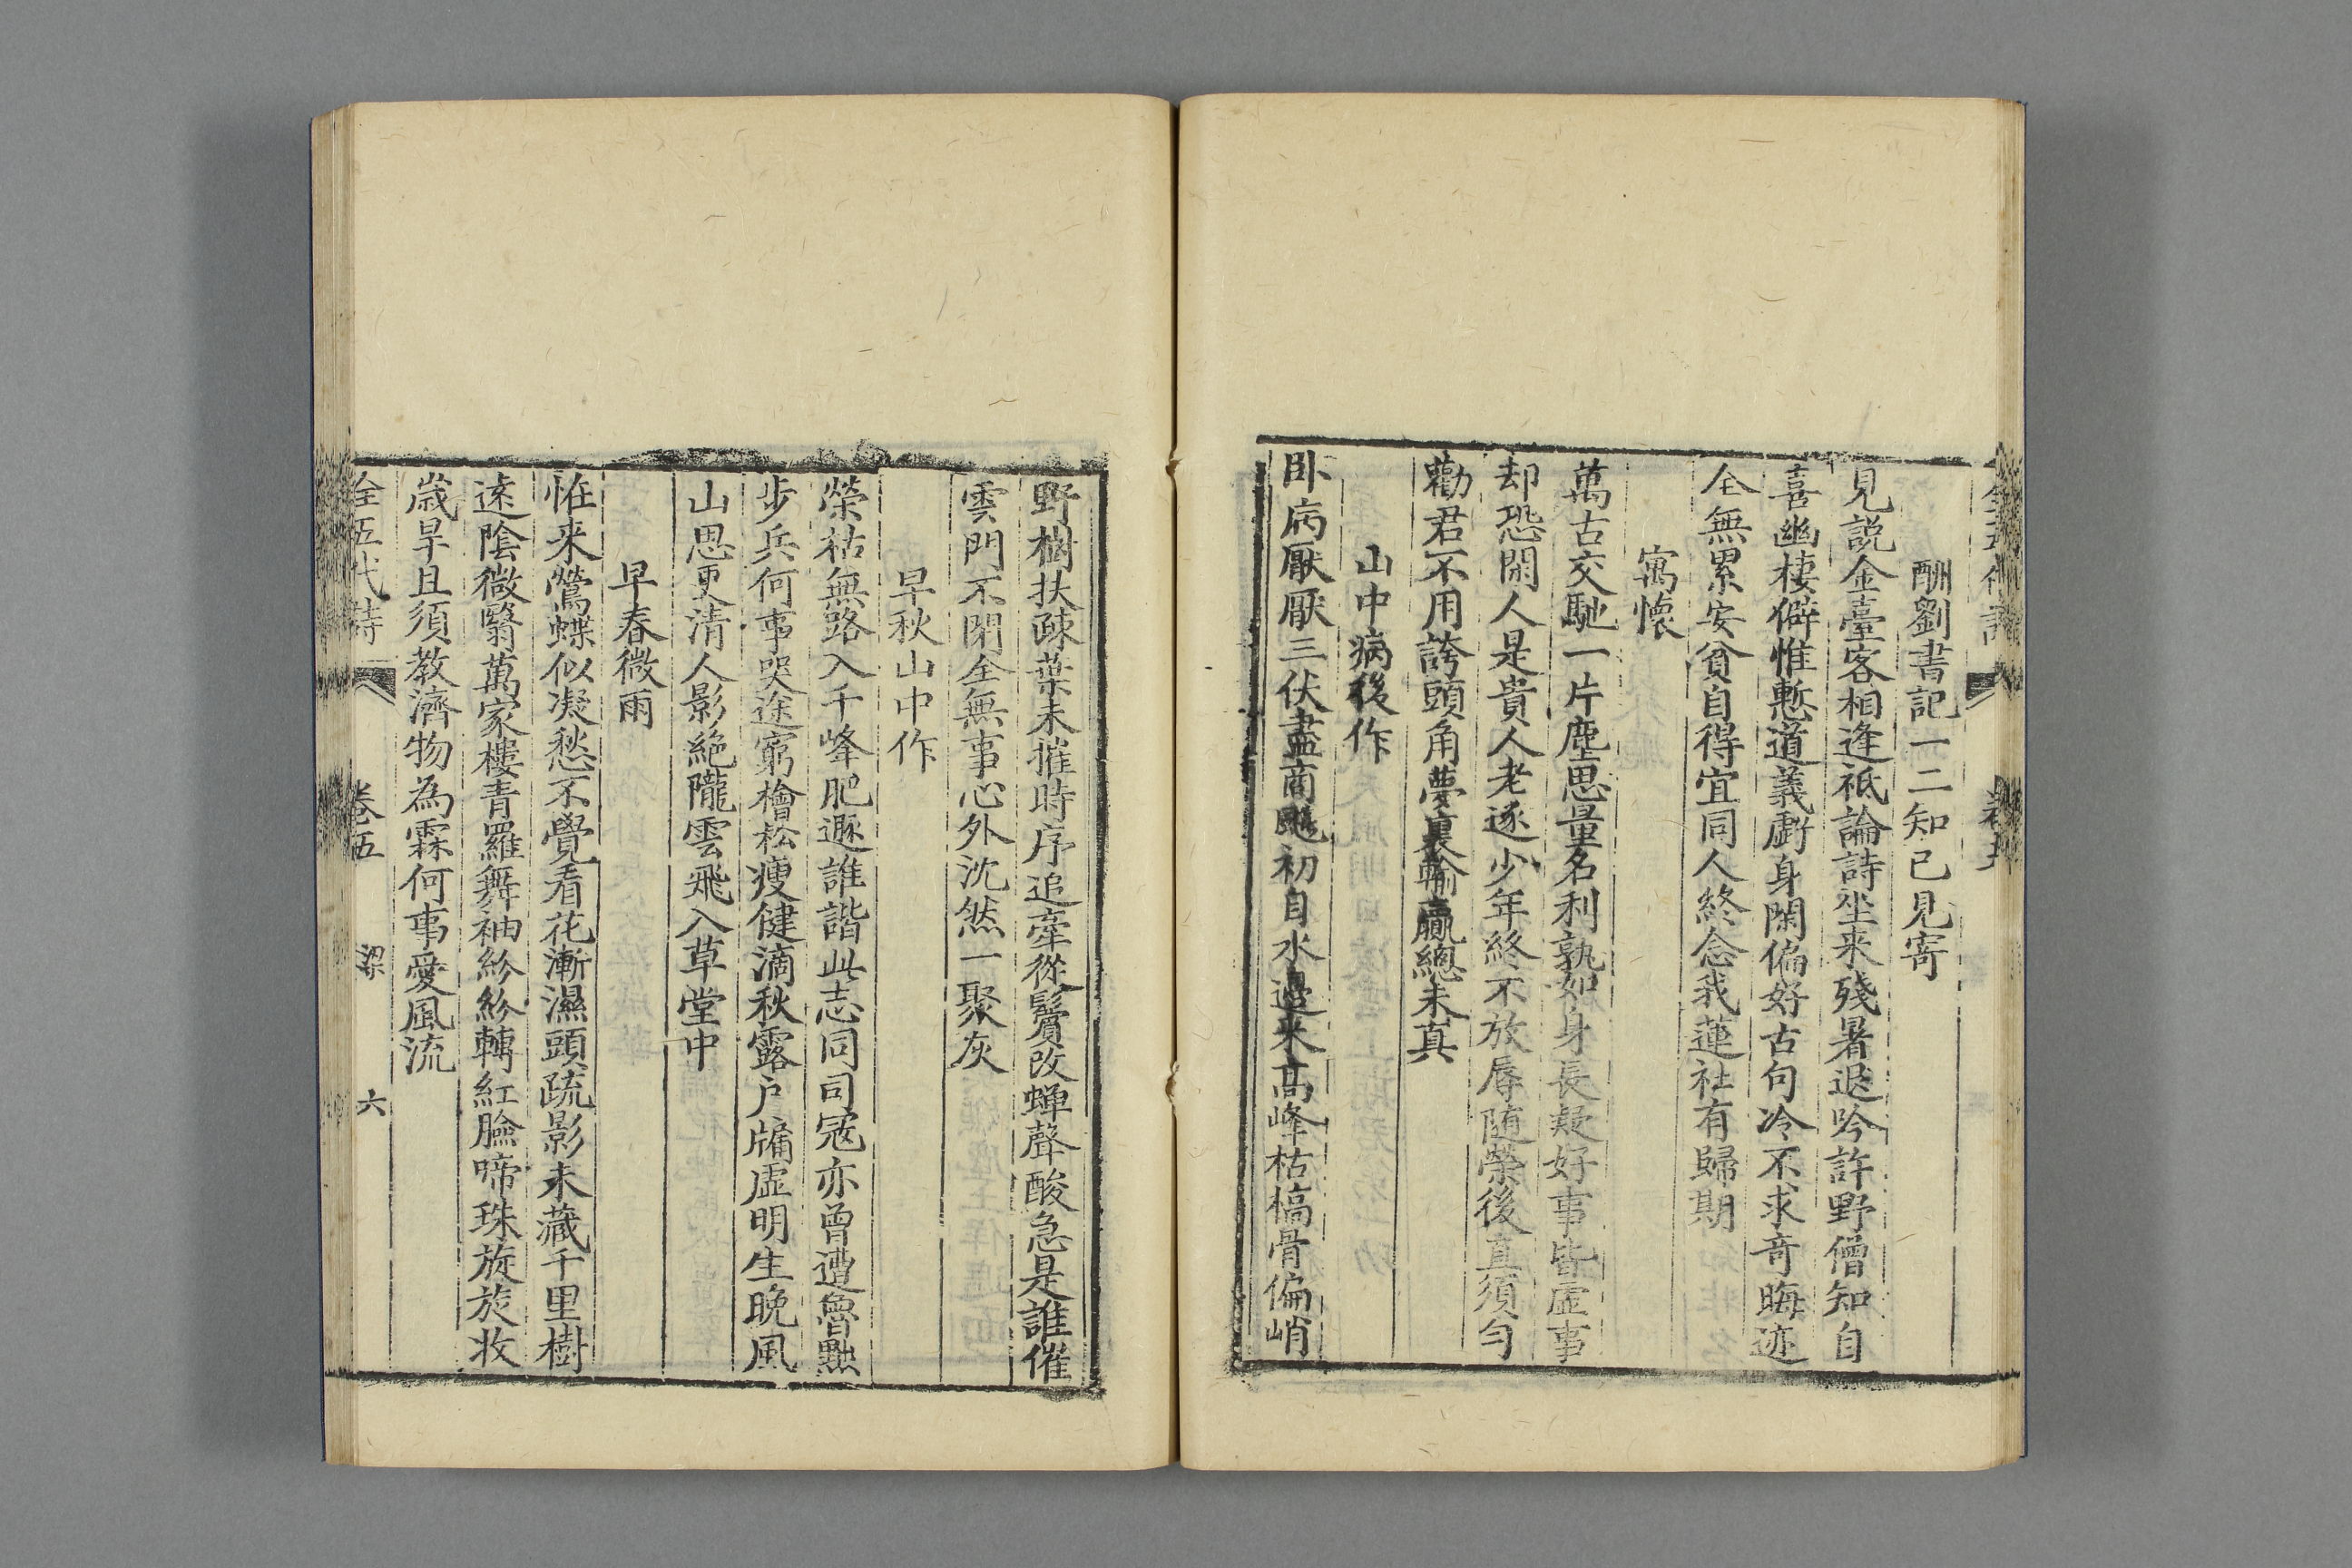 酬劉書記一二知己見寄
見説金臺客相逢祗論詩坐来殘暑退吟許野僧知自
喜幽棲僻惟慙道義虧身閑偏好古句冷不求奇晦迹
全無累安貧自得宜同人終念我蓮社有歸期
寓懷
萬古交馳一片塵思量名利孰如身長疑好事皆虛事
却恐閑人是貴人老逐少年終不放辱隨榮後直須勻
勸君不用誇頭角夢裏輸贏總未真
山中病後作
卧病厭厭三伏盡商飈初自水邊来高峰枯槁骨偏峭
野樹扶踈葉未摧時序追牽從鬢改蟬聲酸急是誰催
雲門不閉全無事心外沈然一聚灰
早秋山中作
榮枯無路入千峰肥遯誰諧此志同司寇亦曾遭魯黜
步兵何事哭途窮檜松瘦健滴秋露戶牖虛明生晚風
山思更清人影絶隴雲飛入草堂中
早春微雨
恠来鶯蝶似凝愁不覺看花漸濕頭疏影未藏千里樹
遠陰微翳萬家樓青羅舞袖紛紛轉紅臉啼珠旋旋收
歳旱且須教濟物為霖何事愛風流
全五代詩 卷五 梁 六